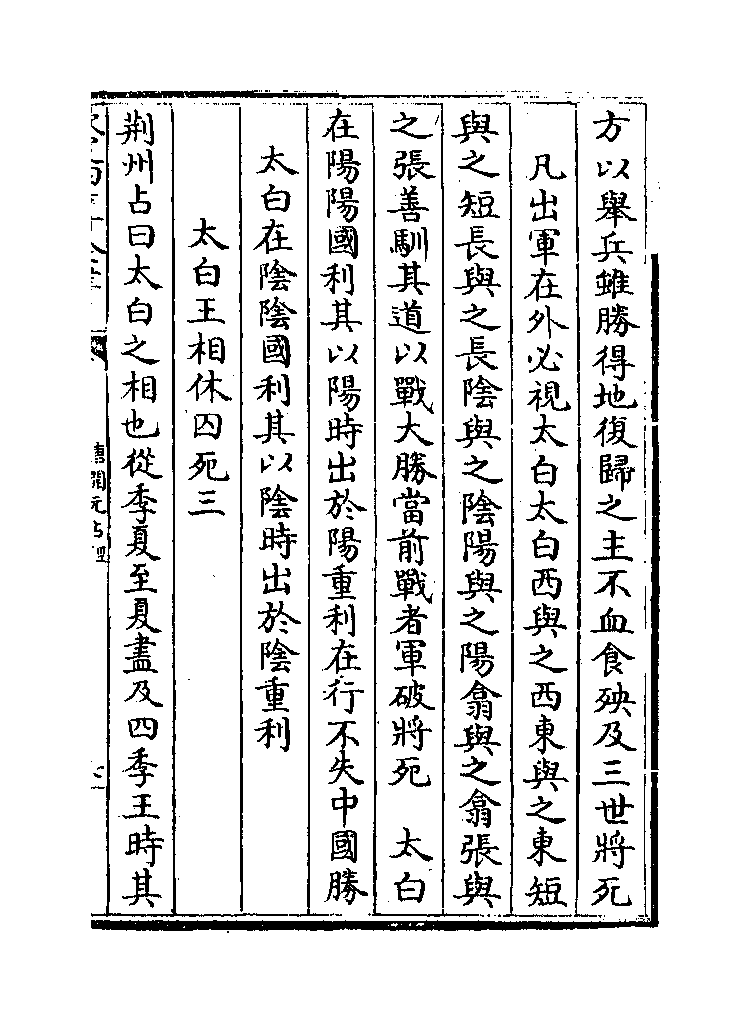 方以舉兵雖勝得地復歸之主不血食殃及三世將死
凡出軍在外必視太白太白西與之西東與之東短
與之短長與之長陰與之陰陽與之陽翕與之翕張與
之張善馴其道以戰大勝當前戰者軍破將死　太白
在陽陽國利其以陽時出於陽重利在行不失中國勝
太白在陰陰國利其以陰時出於陰重利
太白王相休囚死三
荆州占曰太白之相也從季夏至夏盡及四季王時其
唐開元占經